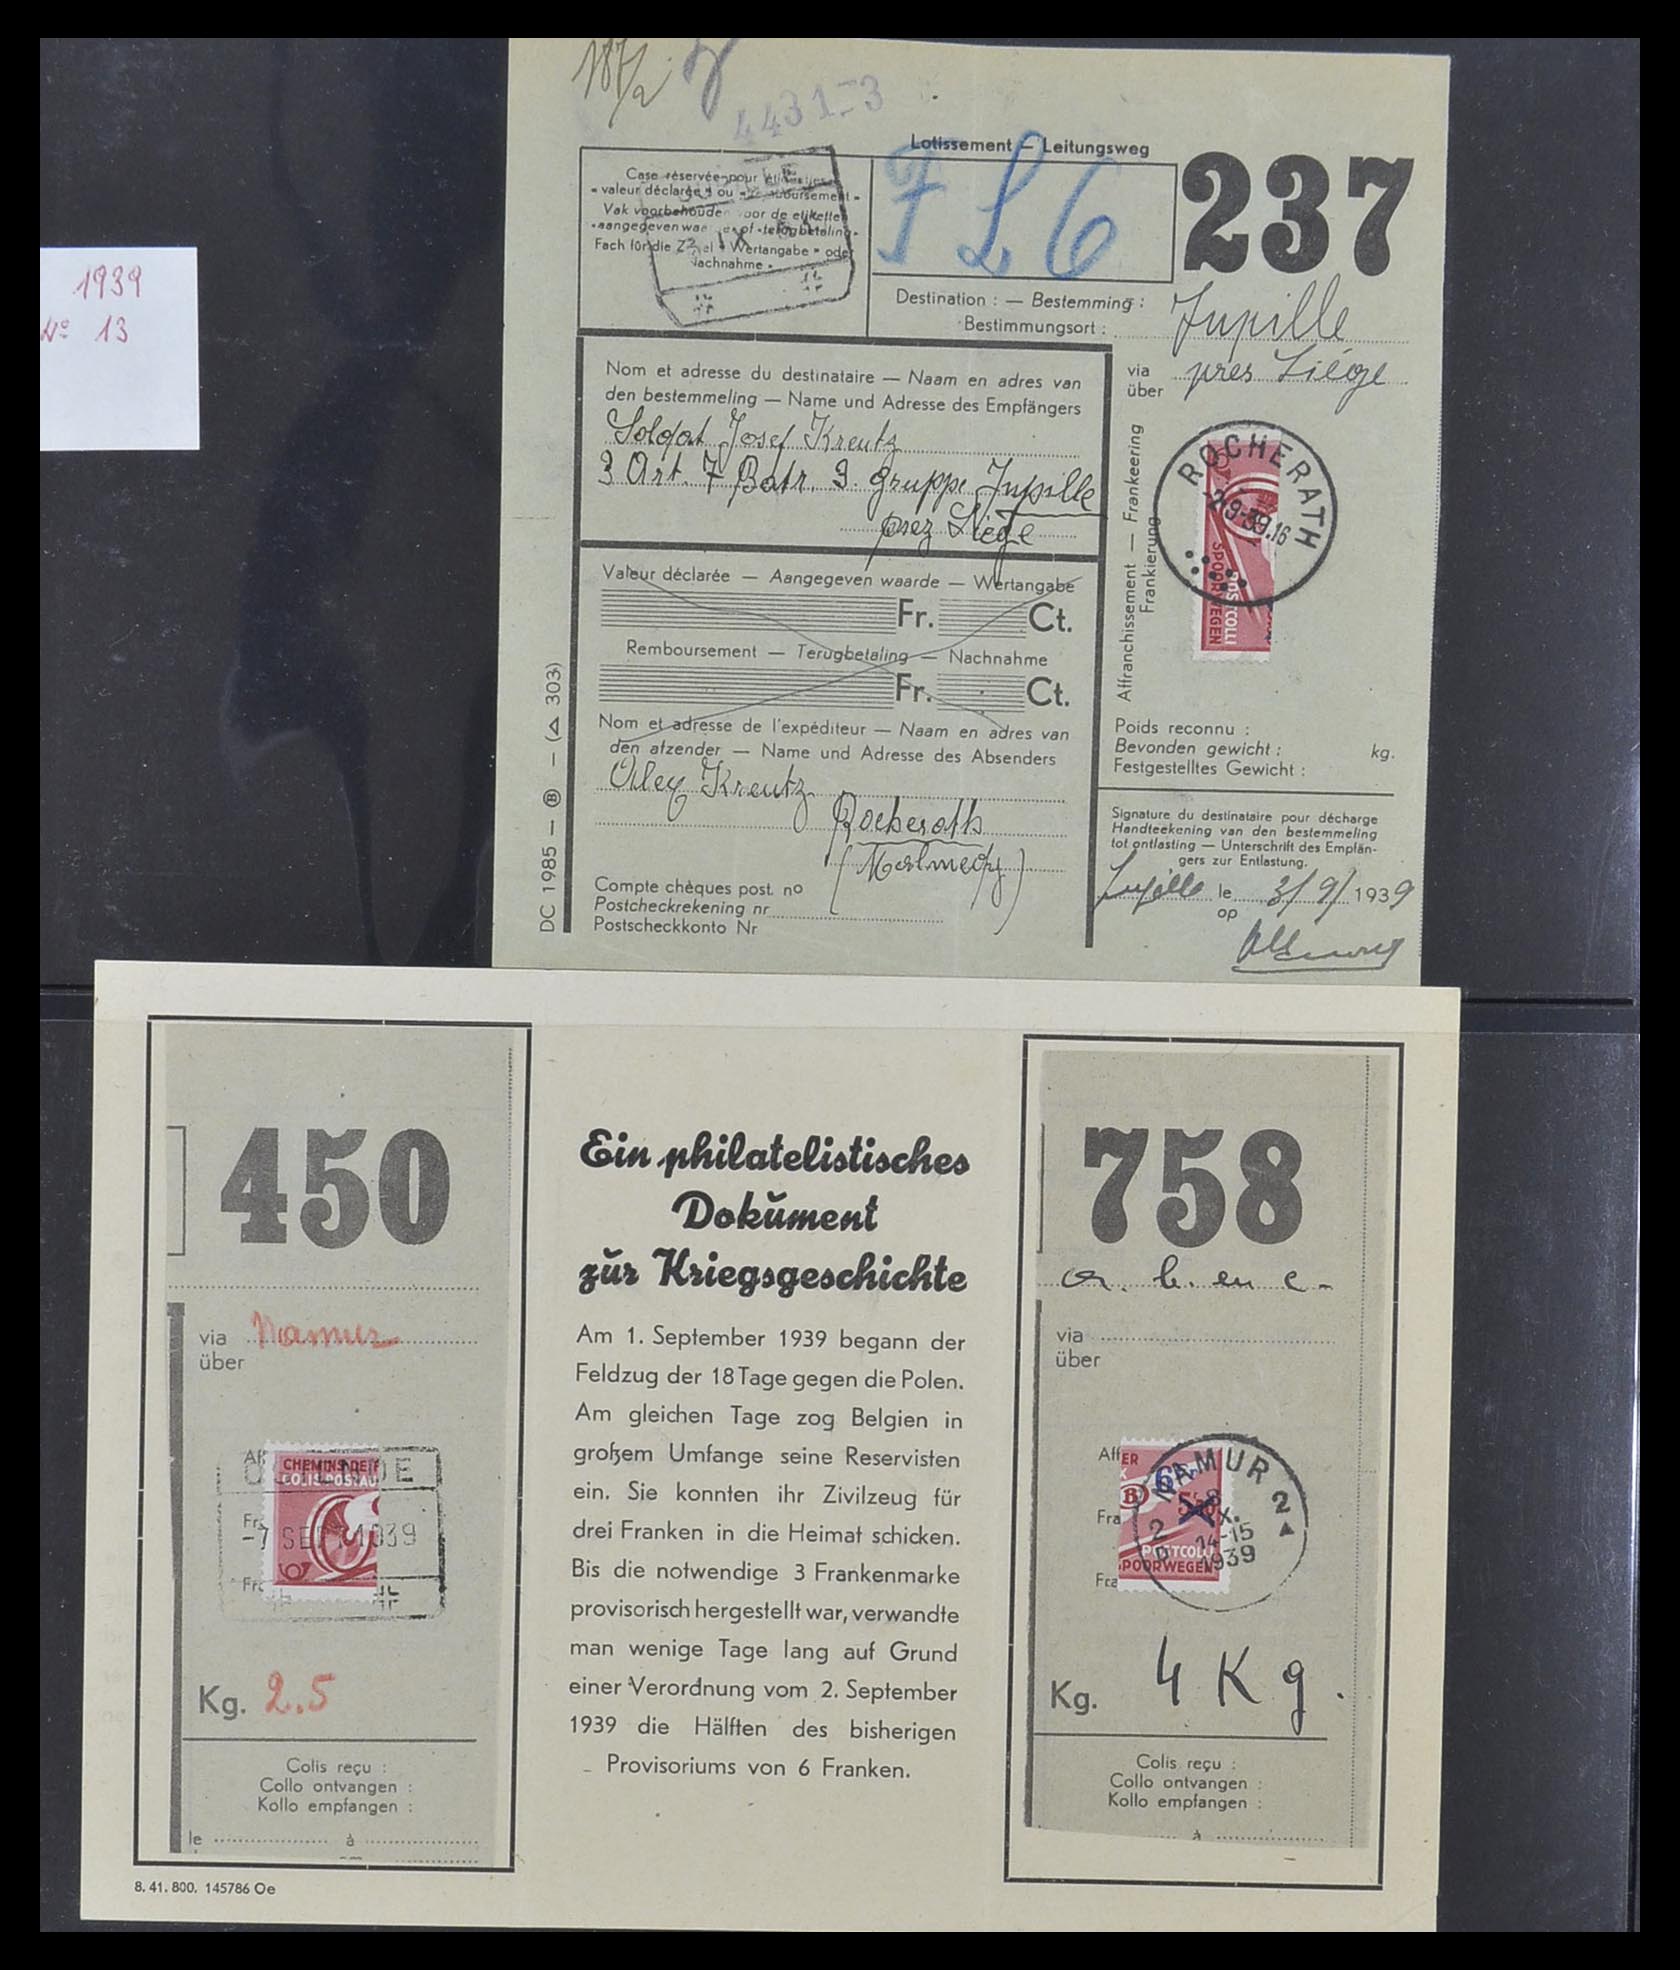 187/2
4431-3
1939
No 13
Lotissement — Leitungsweg
237
Case réservée pour étiquettes
« valeur déclarée » ou « remboursement »
Vak voorbehouden voor de etiketten
«aangegeven waarde» of «terugbetaling»
Fach für die Zettel « Wertangabe » oder
Nachnahme »
F L 6
Destination : — Bestemming :
Bestimmungsort :
Jupille
via
über
pres Liége
Nom et adresse du destinataire — Naam en adres van
den bestemmeling — Name und Adresse des Empfängers
Soldat Josef Kreutz
3 Art. 7 Batr. 3. gruppe Jupille
prez Liége
Affranchissement — Frankeering
Frankierung
ROCHERATH
-2-9-39.16
POSTCOLLI
SPOORWEGEN
Valeur déclarée — Aangegeven waarde — Wertangabe
Fr. Ct.
Remboursement — Terugbetaling — Nachnahme
Fr. Ct.
Nom et adresse de l'expéditeur — Naam en adres van
den afzender — Name und Adresse des Absenders
Kreutz
Rocherath
(Malmedy)
Compte chèques post. no
Postcheckrekening nr
Postscheckkonto Nr
DC 1985 — B — (△ 303)
Poids reconnu :
Bevonden gewicht : kg.
Festgestelltes Gewicht :
Signature du destinataire pour décharge
Handteekening van den bestemmeling
tot ontlasting — Unterschrift des Empfän-
gers zur Entlastung.
Jupille le 3/9/1939
op
450
via Namur
über
CHEMINS DE F
COLIS POSTAU
-7 SEP 1939
Kg. 2.5
Colis reçu :
Collo ontvangen :
Kollo empfangen :
le à
Ein philatelistisches
Dokŭment
zŭr Kriegsgeschichte
Am 1. September 1939 begann der
Feldzug der 18 Tage gegen die Polen.
Am gleichen Tage zog Belgien in
großem Umfange seine Reservisten
ein. Sie konnten ihr Zivilzeug für
drei Franken in die Heimat schicken.
Bis die notwendige 3 Frankenmarke
provisorisch hergestellt war, verwandte
man wenige Tage lang auf Grund
einer Verordnung vom 2. September
1939 die Hälften des bisherigen
Provisoriums von 6 Franken.
758
via
über
Aff
Fra
Fra
NAMUR 2
14-15
1939
POSTCOLLI
SPOORWEGEN
Kg. 4 Kg.
Colis reçu :
Collo ontvangen :
Kollo empfangen :
à
8. 41. 800. 145786 Oe